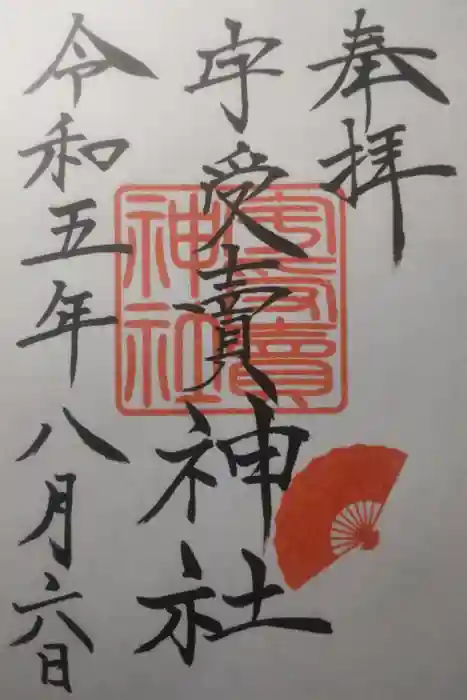 奉拝
宇受賣神社
宇受賣神社
令和五年八月六日